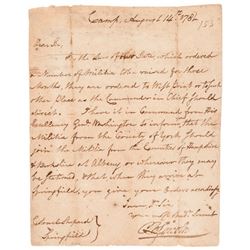 Camp, August 14th 178
153
Dear Sir,
By the Law of this State, which ordered
a Number of Militia to be raised for three
Months, they are ordered to West Point or such
other Place as the Commander in Chief should
direct. I have it in Command from his
Excellency Genl Washington to inform, that the
Militia from the County of York should
join the Militia from the Counties of Hampshire
& Berkshire at Albany or wherever they may
be stationed. When they arrive at
Springfield, you give your Orders accordingly
I am Dr Sir
your most Obedt Servant
Colonel Shepard
Springfield